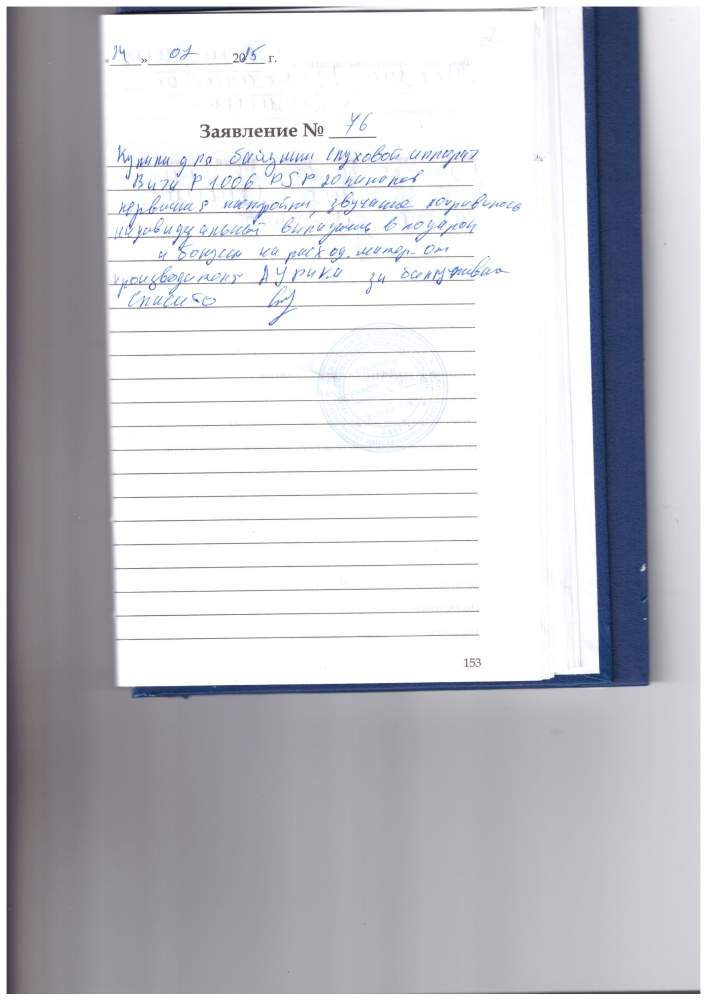 2
«24» 07 2015 г.
Заявление № 76
Купили для бабушки слуховой аппарат
Вита P 1006 PSP 20 каналов
первичная настройка, звучание понравилось
индивидуальный вкладыш в подарок
и бонусы на расход. матер. от
производителя АУРИКА за
Спасибо
153